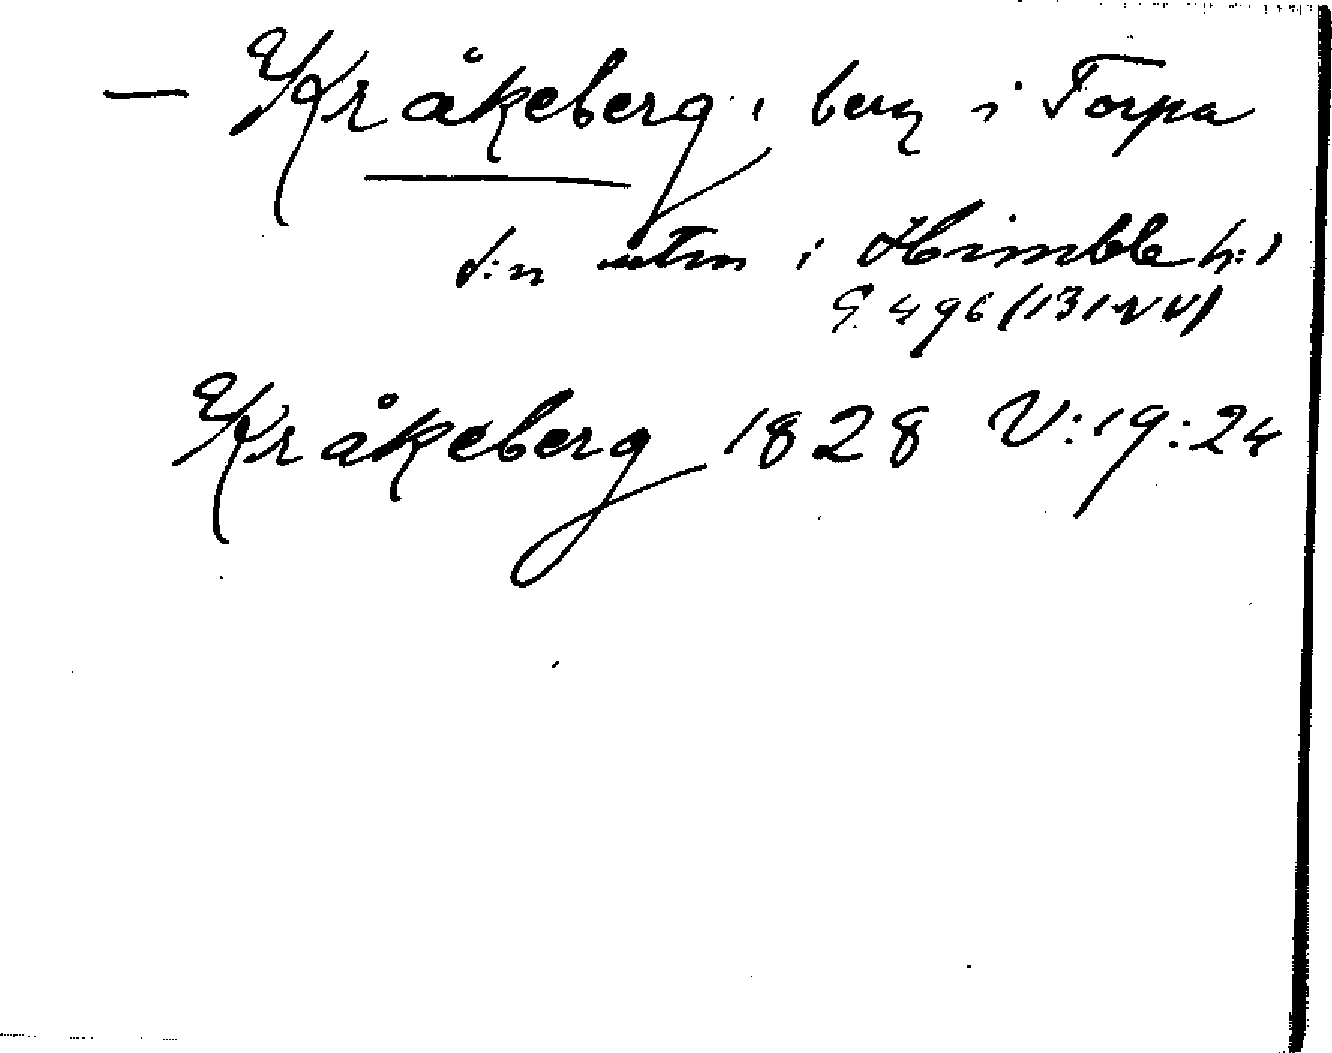 — Kråkeberg, berg i Torpa
s:n i Himble h:d
S. 496 (131 VV)
Kråkeberg 1828 V:19:24